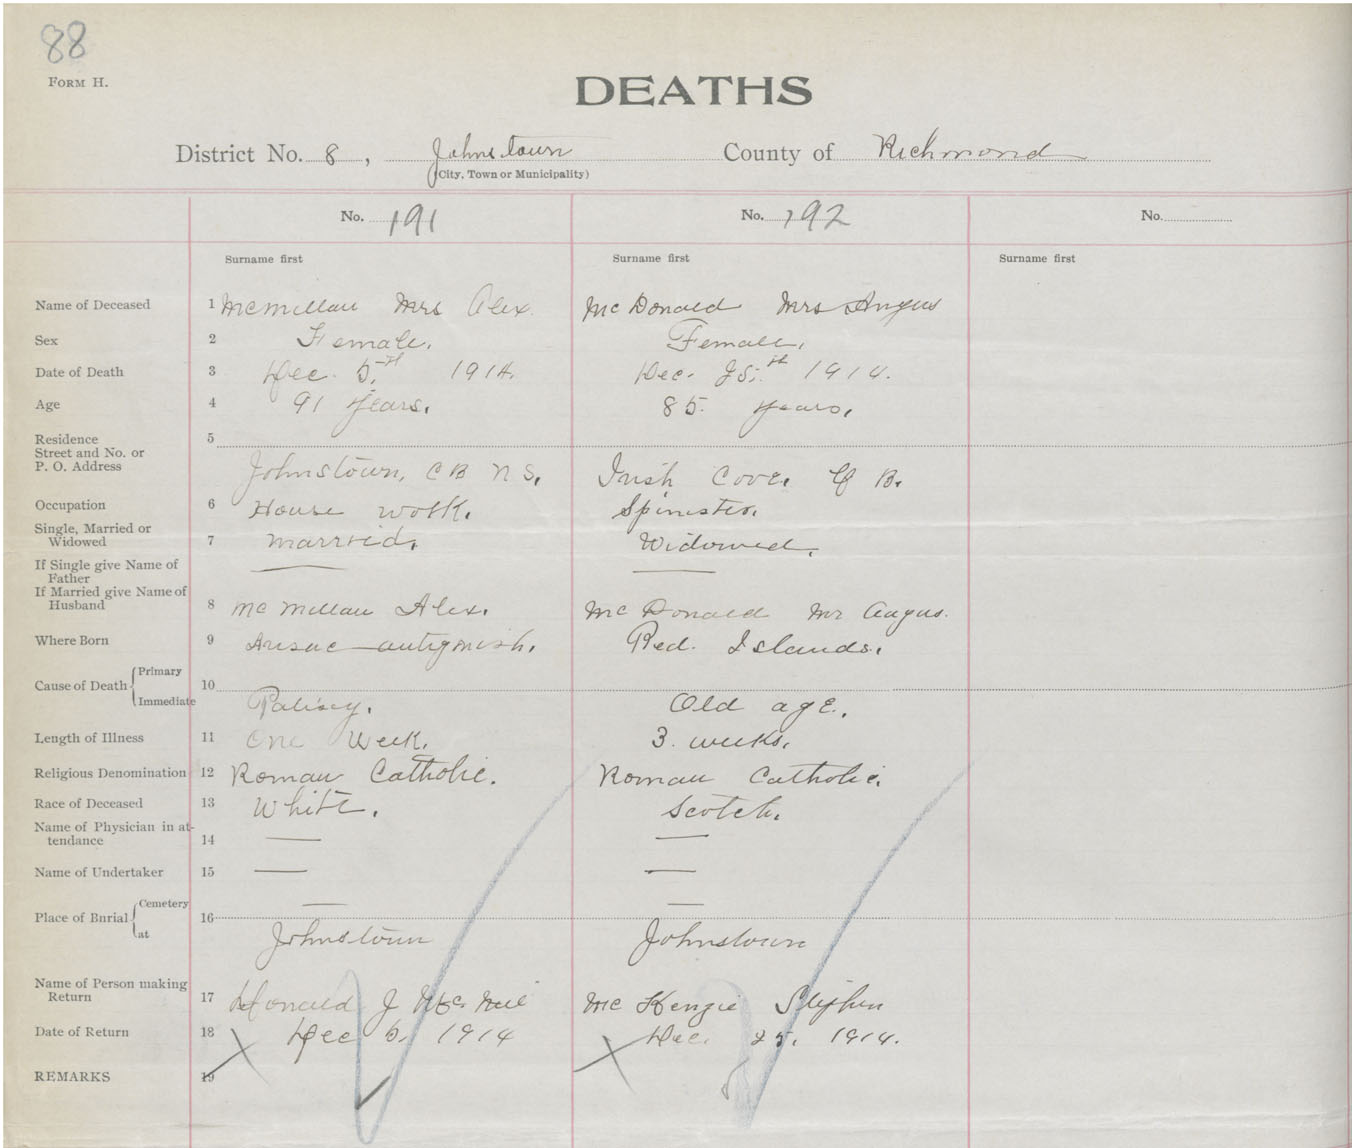 88
FORM H.
DEATHS
District No. 8, Johnstown County of Richmond
(City, Town or Municipality)
No. 191 No. 192 No.
Surname first Surname first Surname first
Name of Deceased 1 McMillan Mrs Alex. McDonald Mrs Angus
Sex 2 Female. Female.
Date of Death 3 Dec. 5th 1914. Dec. 25th 1914.
Age 4 91 years. 85 years.
Residence 5
Street and No. or
P. O. Address Johnstown, CB NS. Irish Cove. C B.
Occupation 6 House work. Spinster.
Single, Married or
Widowed 7 Married. Widowed.
If Single give Name of
Father
If Married give Name of
Husband 8 McMillan Alex. McDonald Mr Angus.
Where Born 9 Arisac antigonish. Red. Islands.
Cause of Death Primary 10
Immediate Palisey. Old age.
Length of Illness 11 One Week. 3. weeks.
Religious Denomination 12 Roman Catholic. Roman Catholic.
Race of Deceased 13 White. Scotch.
Name of Physician in at-
tendance 14
Name of Undertaker 15
Place of Burial Cemetery 16
at Johnstown Johnstown
Name of Person making
Return 17 Donald J McNeil McKenzie Stephen
Date of Return 18 Dec 5, 1914 Dec. 25. 1914.
REMARKS 19